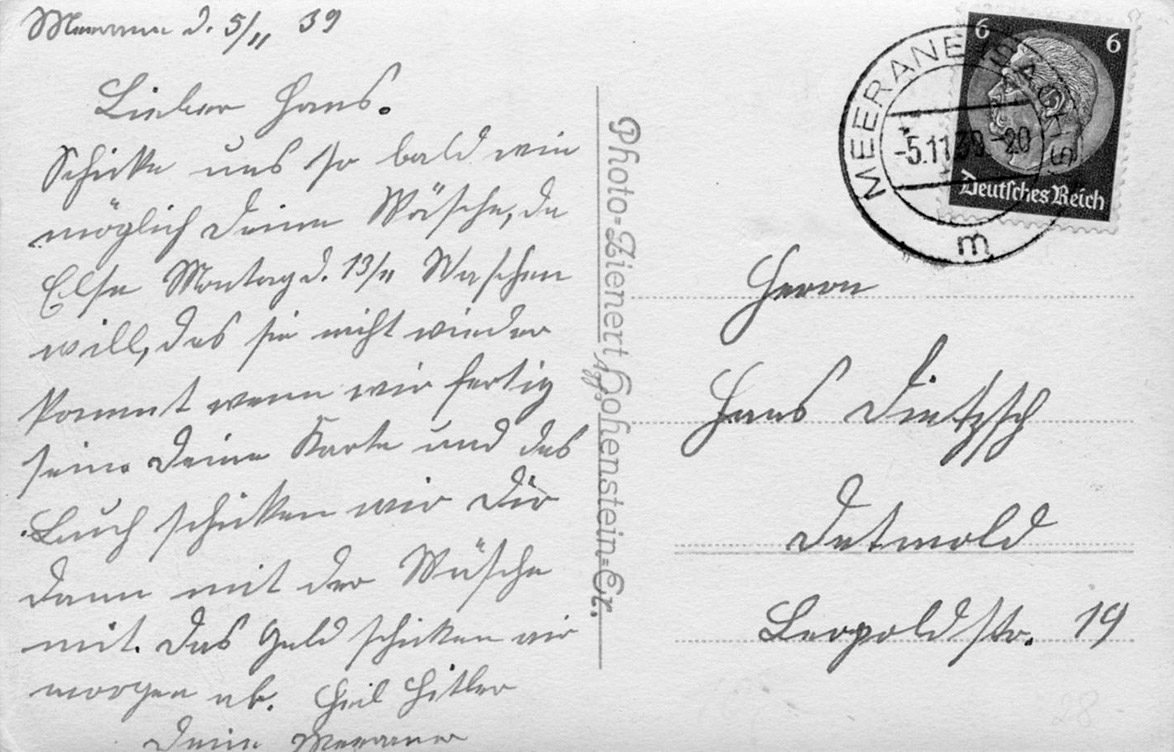 Meerane d. 5/11 39
Lieber Hans.
Schicke uns so bald wie
möglich Deine Wäsche, da
Else Montag d. 13/11 Waschen
will, das sie nicht wieder
kommt wenn wir fertig
sein. Deine Karte und das
Buch schicken wir Dir
dann mit der Wäsche
mit. Das Geld schicken wir
morgen ab. Heil Hitler
Deine Meeraner
Photo-Zienert Hohenstein-Er.
6 6
Deutsches Reich
MEERANE (SACHS)
-5.11.39-20
m
Herrn
Hans Dietzsch
Detmold
Leopoldstr. 19